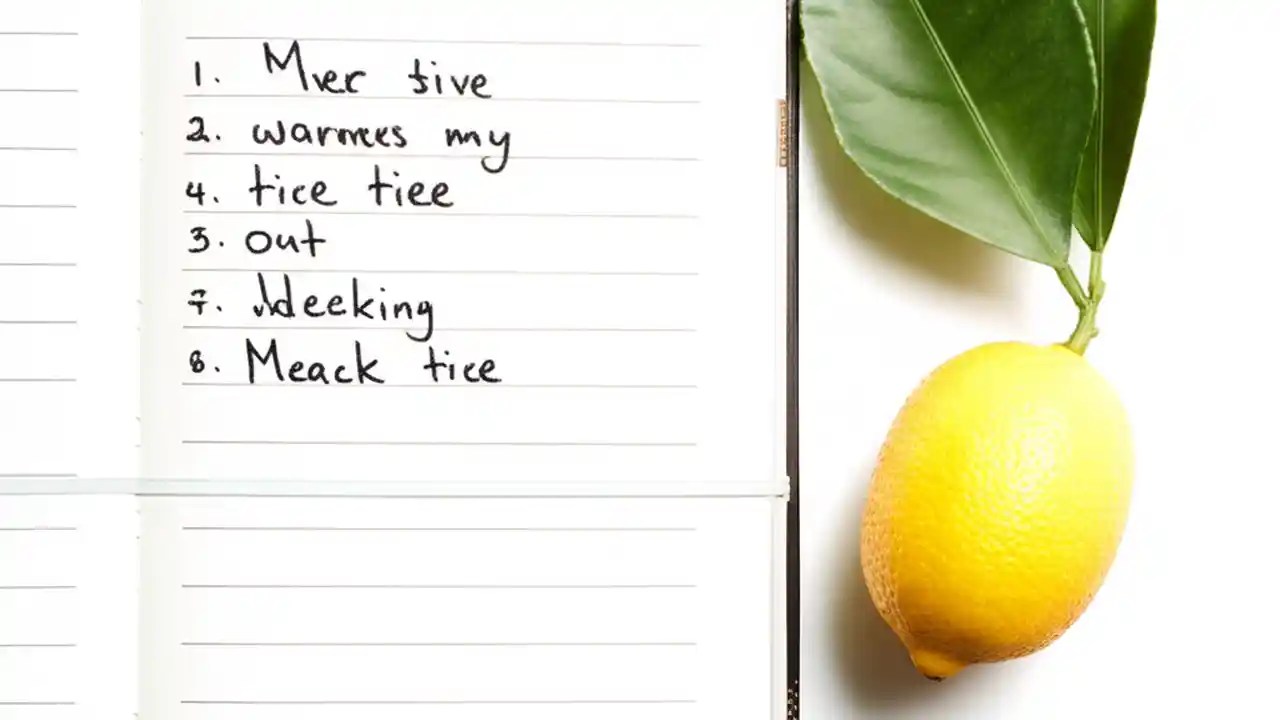 1. Mver tive
2. warmes my
4. tice tiee
3. out
7. Jdeeking
8. Meack tice